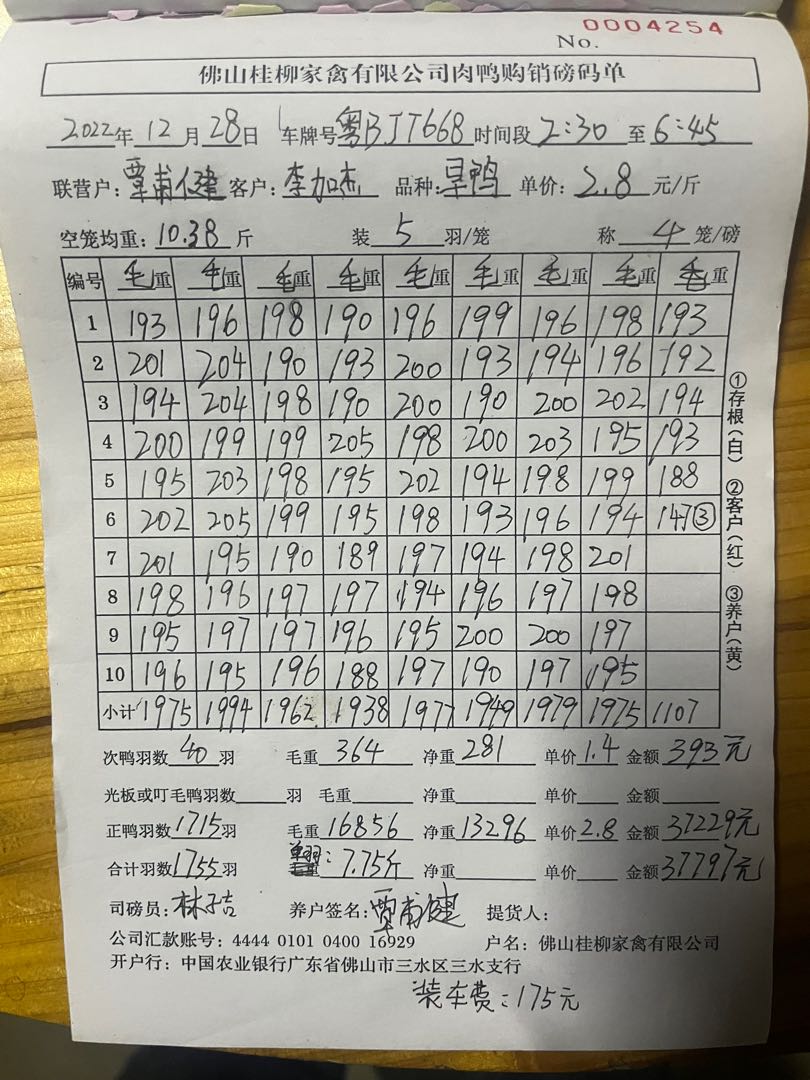 No. 0004254
佛山桂柳家禽有限公司肉鸭购销磅码单
2022年 12月 28日 车牌号 粤BJT668 时间段 2:30 至 6:45
联营户: 覃甫健 客户: 李加杰 品种: 旱鸭 单价: 2.8 元/斤
空笼均重: 10.38 斤 装 5 羽/笼 称 4 笼/磅
编号 毛重 毛重 毛重 毛重 毛重 毛重 毛重 毛重 毛重
1 193 196 198 190 196 199 196 198 193
2 201 204 190 193 200 193 194 196 192
3 194 204 198 190 200 190 200 202 194
4 200 199 199 205 198 200 203 195 193
5 195 203 198 195 202 194 198 199 188
6 202 205 199 195 198 193 196 194 147③
7 201 195 190 189 197 194 198 201
8 198 196 197 197 194 196 197 198
9 195 197 197 196 195 200 200 197
10 196 195 196 188 197 190 197 195
小计 1975 1994 1962 1938 1977 1949 1979 1975 1107
①存根(白) ②客户(红) ③养户(黄)
次鸭羽数 40 羽 毛重 364 净重 281 单价 1.4 金额 393元
光板或叮毛鸭羽数 羽 毛重 净重 单价 金额
正鸭羽数 1715 羽 毛重 16856 净重 13296 单价 2.8 金额 37229元
合计羽数 1755 羽 : 7.75斤 净重 单价 金额 37797元
司磅员: 林子吉 养户签名: 覃甫健 提货人:
公司汇款账号: 4444 0101 0400 16929 户名: 佛山桂柳家禽有限公司
开户行: 中国农业银行广东省佛山市三水区三水支行
装车费: 175元